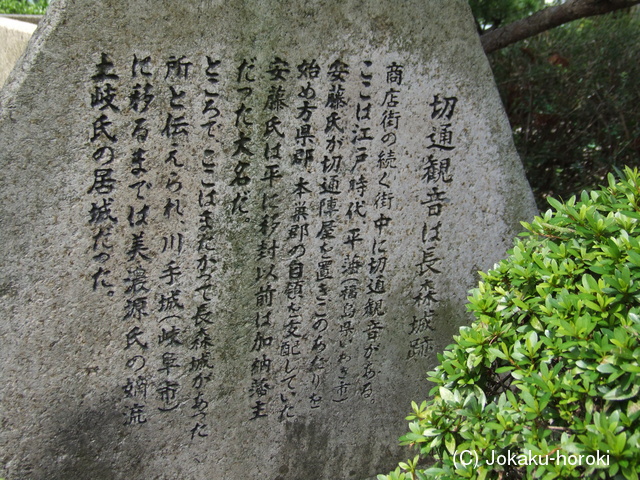 切通観音は長森城跡
商店街の続く街中に切通観音がある
ここは江戸時代、平藩(福島県いわき市)
安藤氏が切通陣屋を置きこのあたりを
始め方県郡、本巣郡の自領を支配していた
安藤氏は平に移封以前は加納藩主
だった大名だ。
ところで、ここはまたかつて長森城があった
所と伝えられ、川手城(岐阜市)
に移るまでは美濃源氏の嫡流
土岐氏の居城だった。
(C) Jokaku-horoki